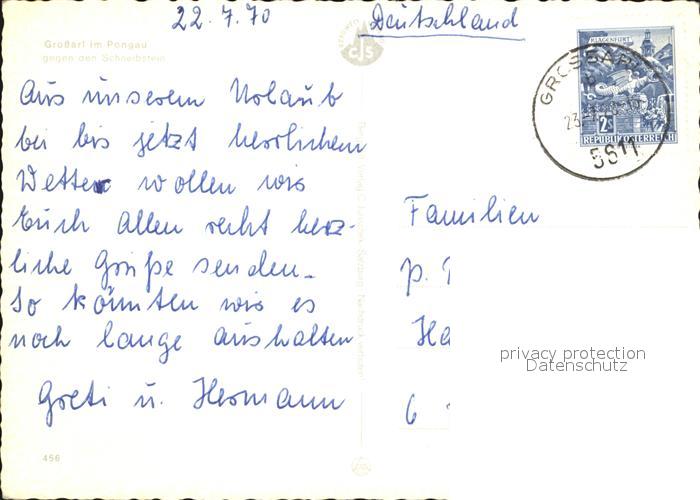 22.7.70 Deutschland
Großarl im Pongau
gegen den Schreibstein
KLAGENFURT
2S
REPUBLIK ÖSTERREICH
GROSSARL
5611
Aus unserem Urlaub
bei bis jetzt herrlichem
Wetter wollen wir
Euch Allen recht herz-
liche Grüße senden.
So könnten wir es
noch lange aushalten
Greti u. Hermann
Familien
p.
Ha
6
privacy protection
Datenschutz
456